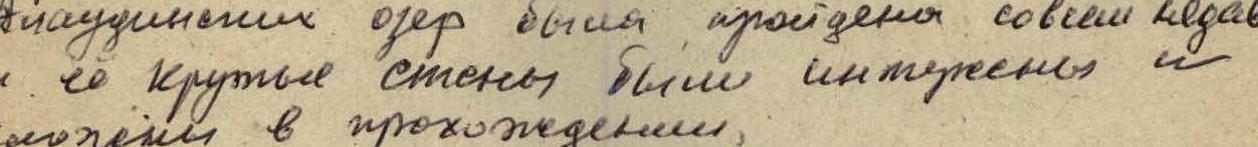 Алаудинских озер была пройдена совсем недав
и её крутые стены были интересны и
сложны в прохождении,